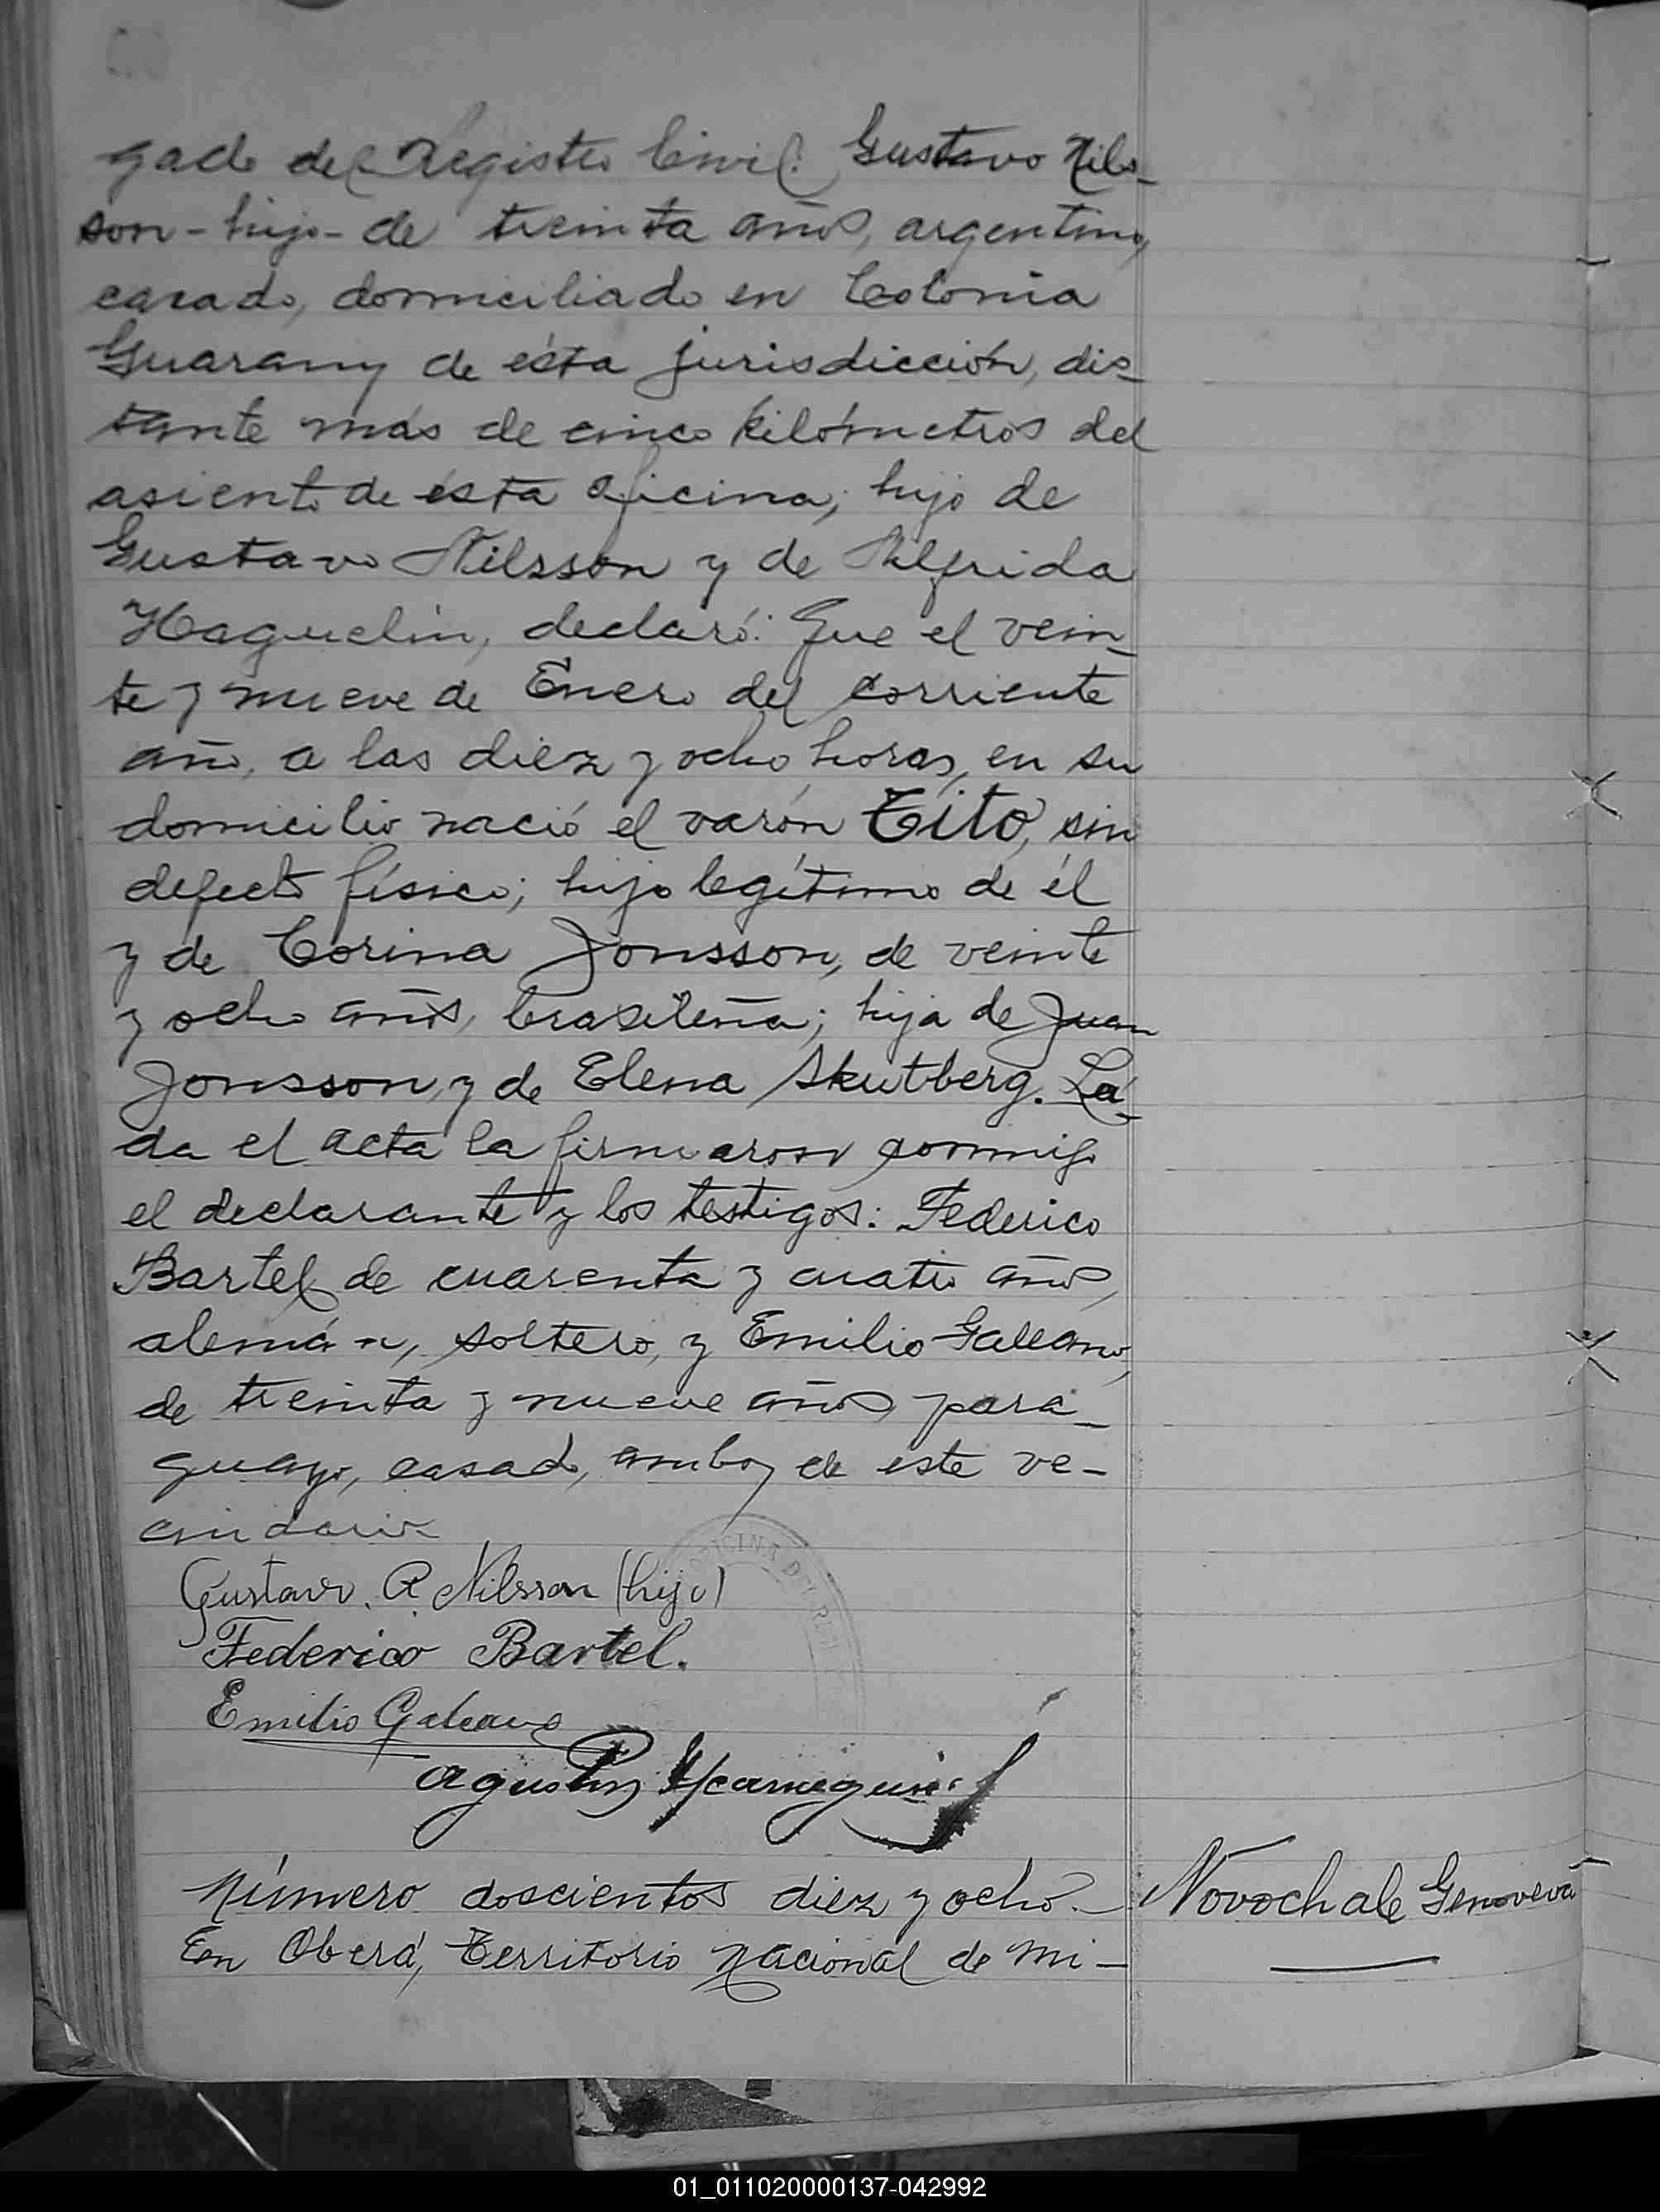 gado del Registro Civil. Gustavo Nils-
son-hijo-de treinta años, argentino,
casado, domiciliado en Colonia
Guarany de ésta jurisdicción, dis-
tante más de cinco kilómetros del
asiento de ésta oficina; hijo de
Gustavo Nilsson y de
Haguelin, declaró: Que el vein-
te y nueve de Enero del corriente
año, a las diez y ocho horas, en su
domicilio nació el varón Tito, sin
defecto físico; hijo legítimo de él
y de Corina Jonsson, de veinte
y ocho años, brasileña; hija de Juan
Jonsson, y de Elena Skutberg. Leí-
da el acta la firmaron conmigo
el declarante y los testigos: Federico
Bartel de cuarenta y cuatro años,
alemán, soltero, y Emilio Galeano,
de treinta y nueve años, para-
guayo, casado, ambos de este ve-
cindario
Gustavo. A. Nilsson (hijo)
Federico Bartel.
Emilio Galeano
Agustín
Número doscientos diez y ocho.- Novochale Genoveva
En Oberá, Territorio Nacional de Mi-
01_011020000137-042992